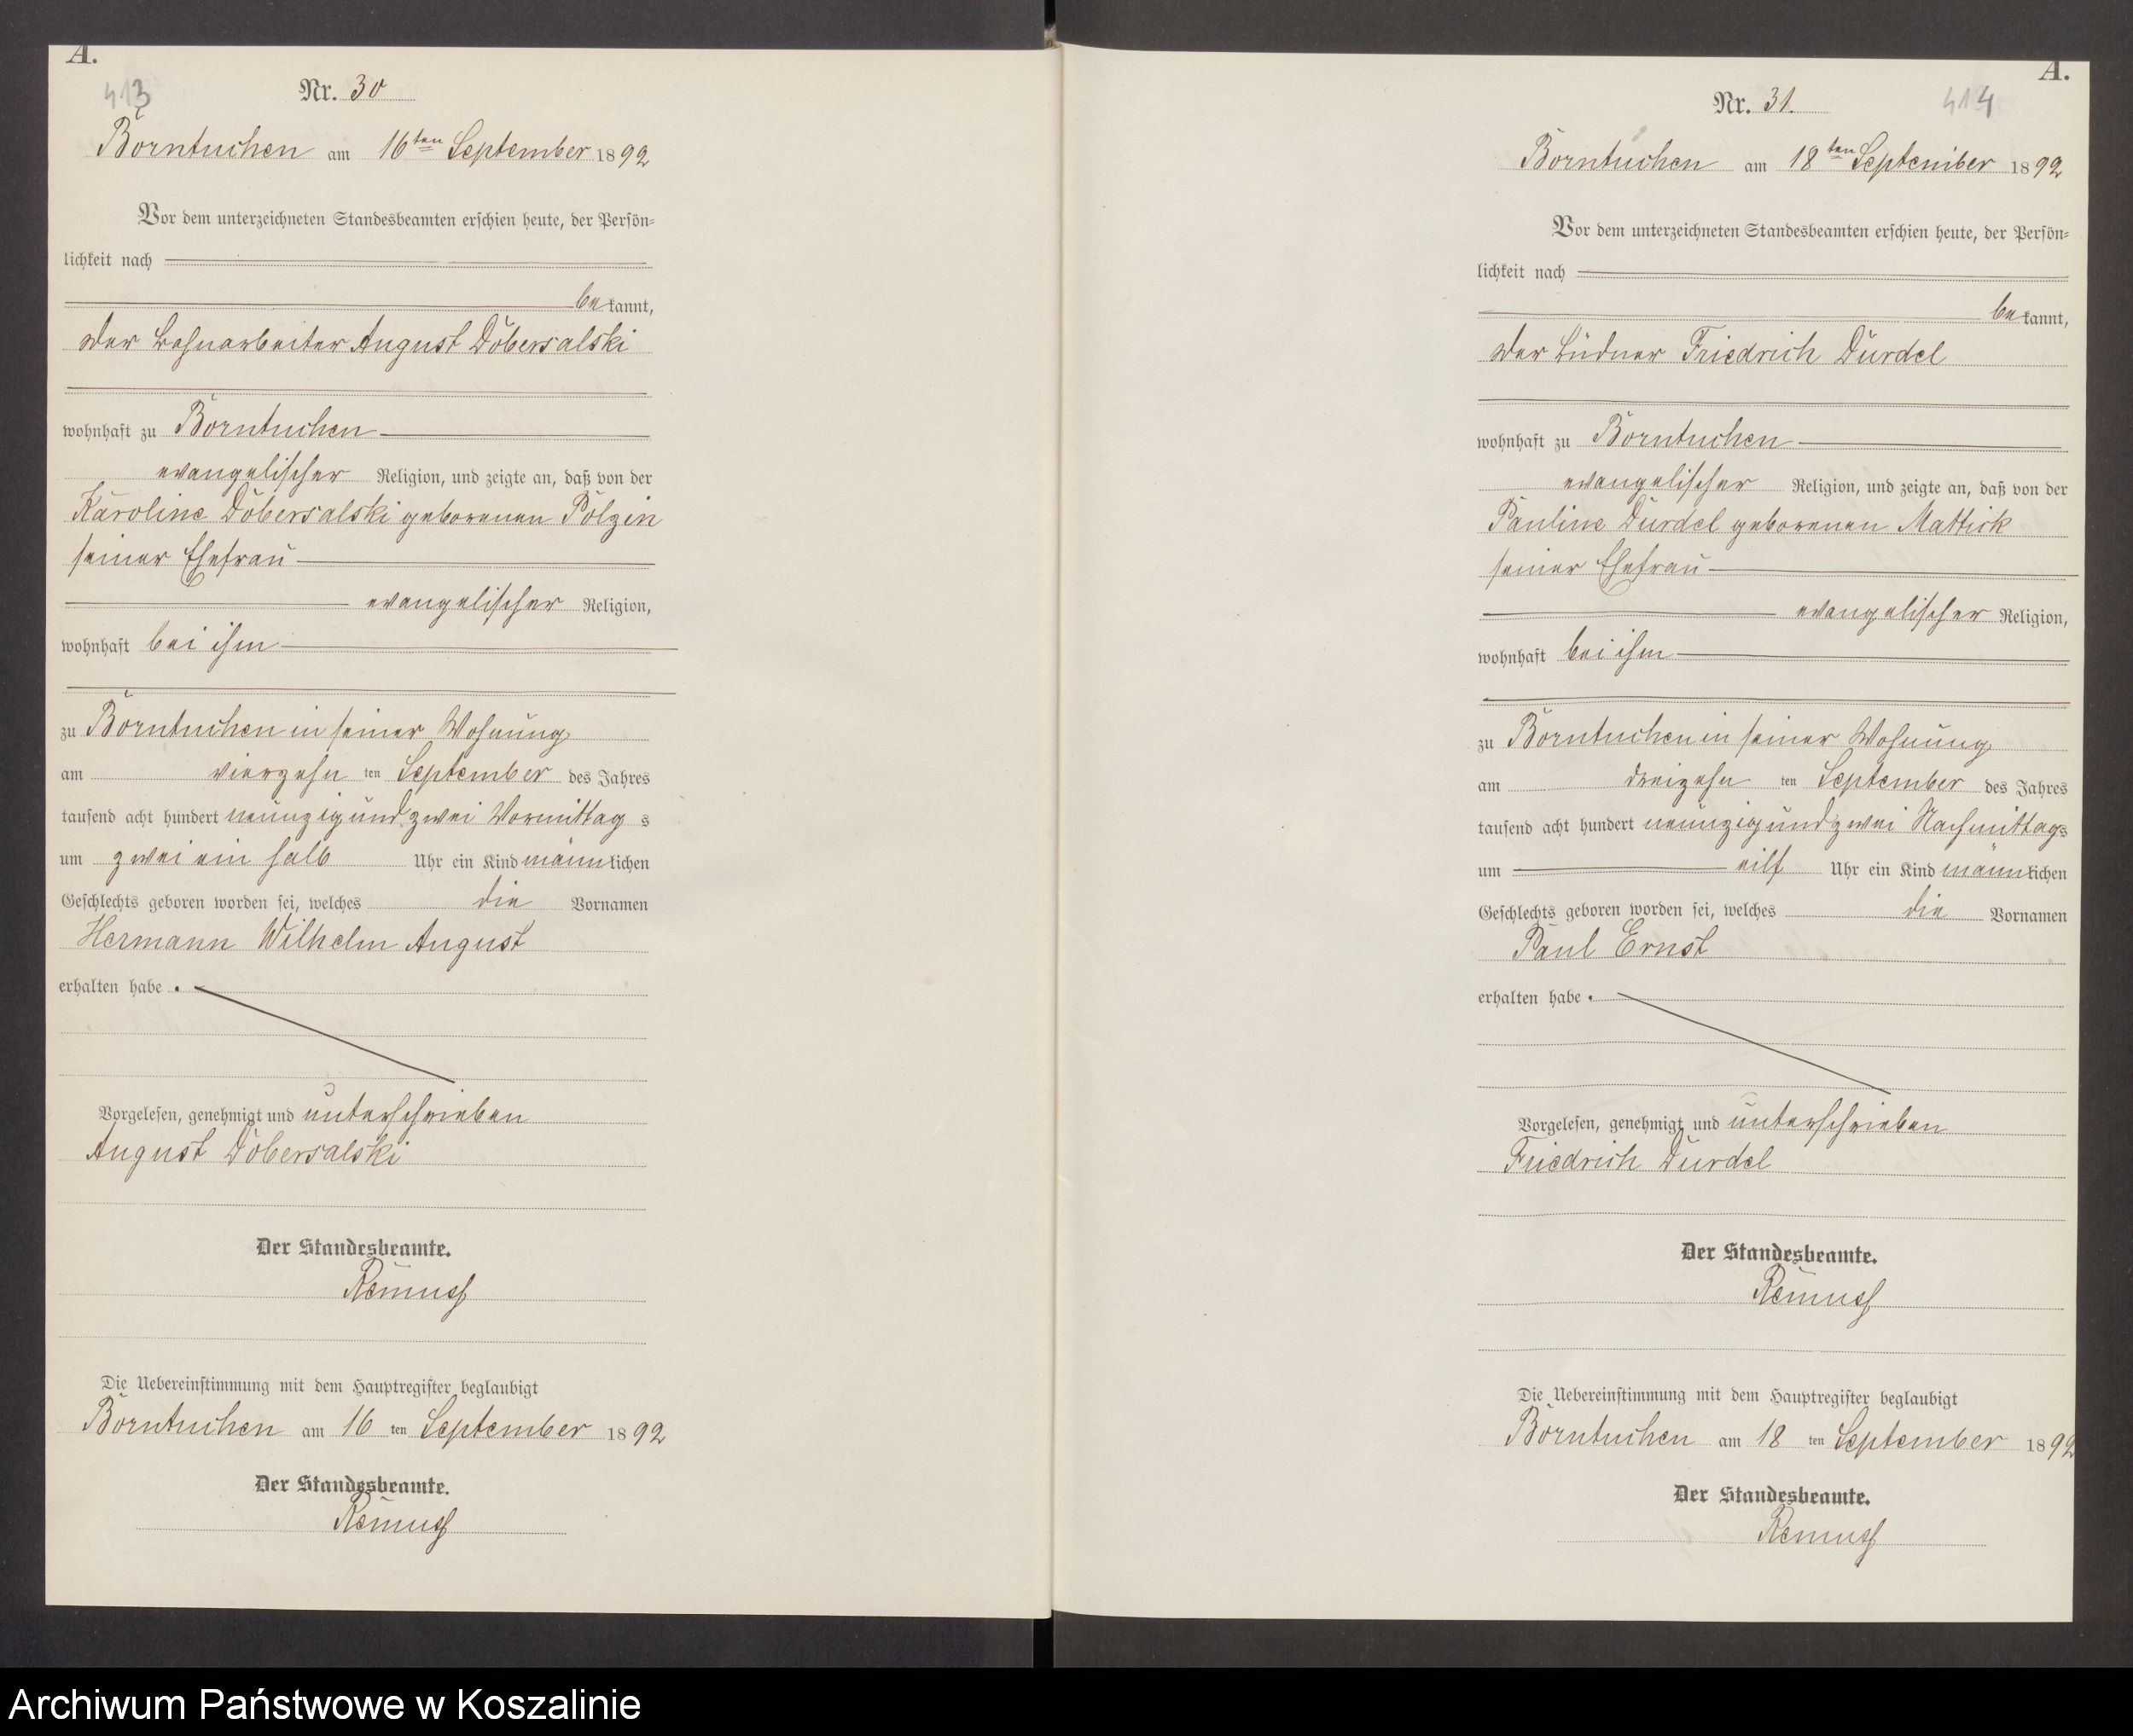 A.
413
Nr. 30
Borntuchen am 16ten September 1892
Vor dem unterzeichneten Standesbeamten erschien heute, der Persön-
lichkeit nach
bekannt,
der Bahnarbeiter August Dobersalski
wohnhaft zu Borntuchen
evangelischer Religion, und zeigte an, daß von der
Karoline Dobersalski geborenen Polzin
seiner Ehefrau
evangelischer Religion,
wohnhaft bei ihm
zu Borntuchen in seiner Wohnung
am vierzehn ten September des Jahres
tausend acht hundert neunzig und zwei Vormittag s
um zwei ein halb Uhr ein Kind männlichen
Geschlechts geboren worden sei, welches die Vornamen
Hermann Wilhelm August
erhalten habe.
Vorgelesen, genehmigt und unterschrieben
August Dobersalski
Der Standesbeamte.
Remus
Die Uebereinstimmung mit dem Hauptregister beglaubigt
Borntuchen am 16 ten September 1892
Der Standesbeamte.
Remus
A.
414
Nr. 31.
Borntuchen am 18ten September 1892
Vor dem unterzeichneten Standesbeamten erschien heute, der Persön-
lichkeit nach
bekannt,
der Büdner Friedrich Durdel
wohnhaft zu Borntuchen
evangelischer Religion, und zeigte an, daß von der
Pauline Durdel geborenen Mattick
seiner Ehefrau
evangelischer Religion,
wohnhaft bei ihm
zu Borntuchen in seiner Wohnung
am dreizehn ten September des Jahres
tausend acht hundert neunzig und zwei Nachmittags
um eilf Uhr ein Kind männlichen
Geschlechts geboren worden sei, welches die Vornamen
Paul Ernst
erhalten habe.
Vorgelesen, genehmigt und unterschrieben
Friedrich Durdel
Der Standesbeamte.
Remus
Die Uebereinstimmung mit dem Hauptregister beglaubigt
Borntuchen am 18 ten September 1892
Der Standesbeamte.
Remus
Archiwum Państwowe w Koszalinie